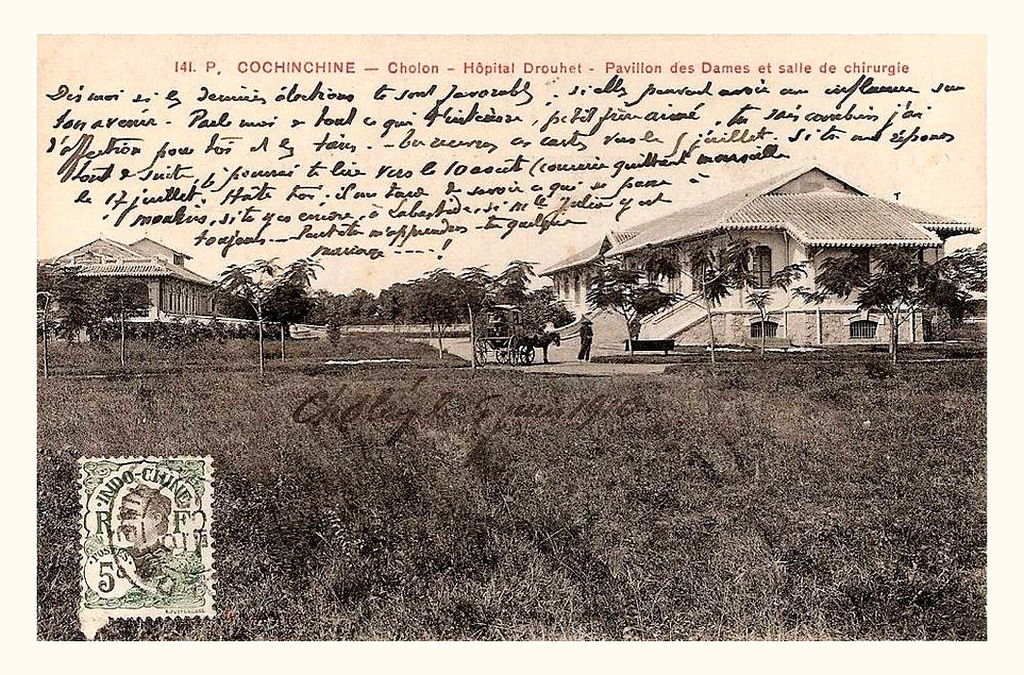 141. P. COCHINCHINE — Cholon - Hôpital Drouhet - Pavillon des Dames et salle de chirurgie
Dis moi si les dernières élections te sont favorables, si elles peuvent avoir une influence sur
ton avenir. Parle moi de tout ce qui t'intéresse, petit frère aimé, tu sais combien j'ai
d'affection pour toi et les tiens. - tu recevras ces cartes vers le 5 juillet. Si tu me réponds
tout de suite, je pourrai te lire vers le 10 août (courrier quittant Marseille
le 17 juillet. Hâte toi. il me tarde de savoir ce qui se passe à
Moulins, si tu y es encore, à Labastide, si Mr Julien y est
toujours — Peut être m'apprendras-tu quelque
mariage - - - - !
Cholon le 6 juin
INDO-CHINE
R F
5